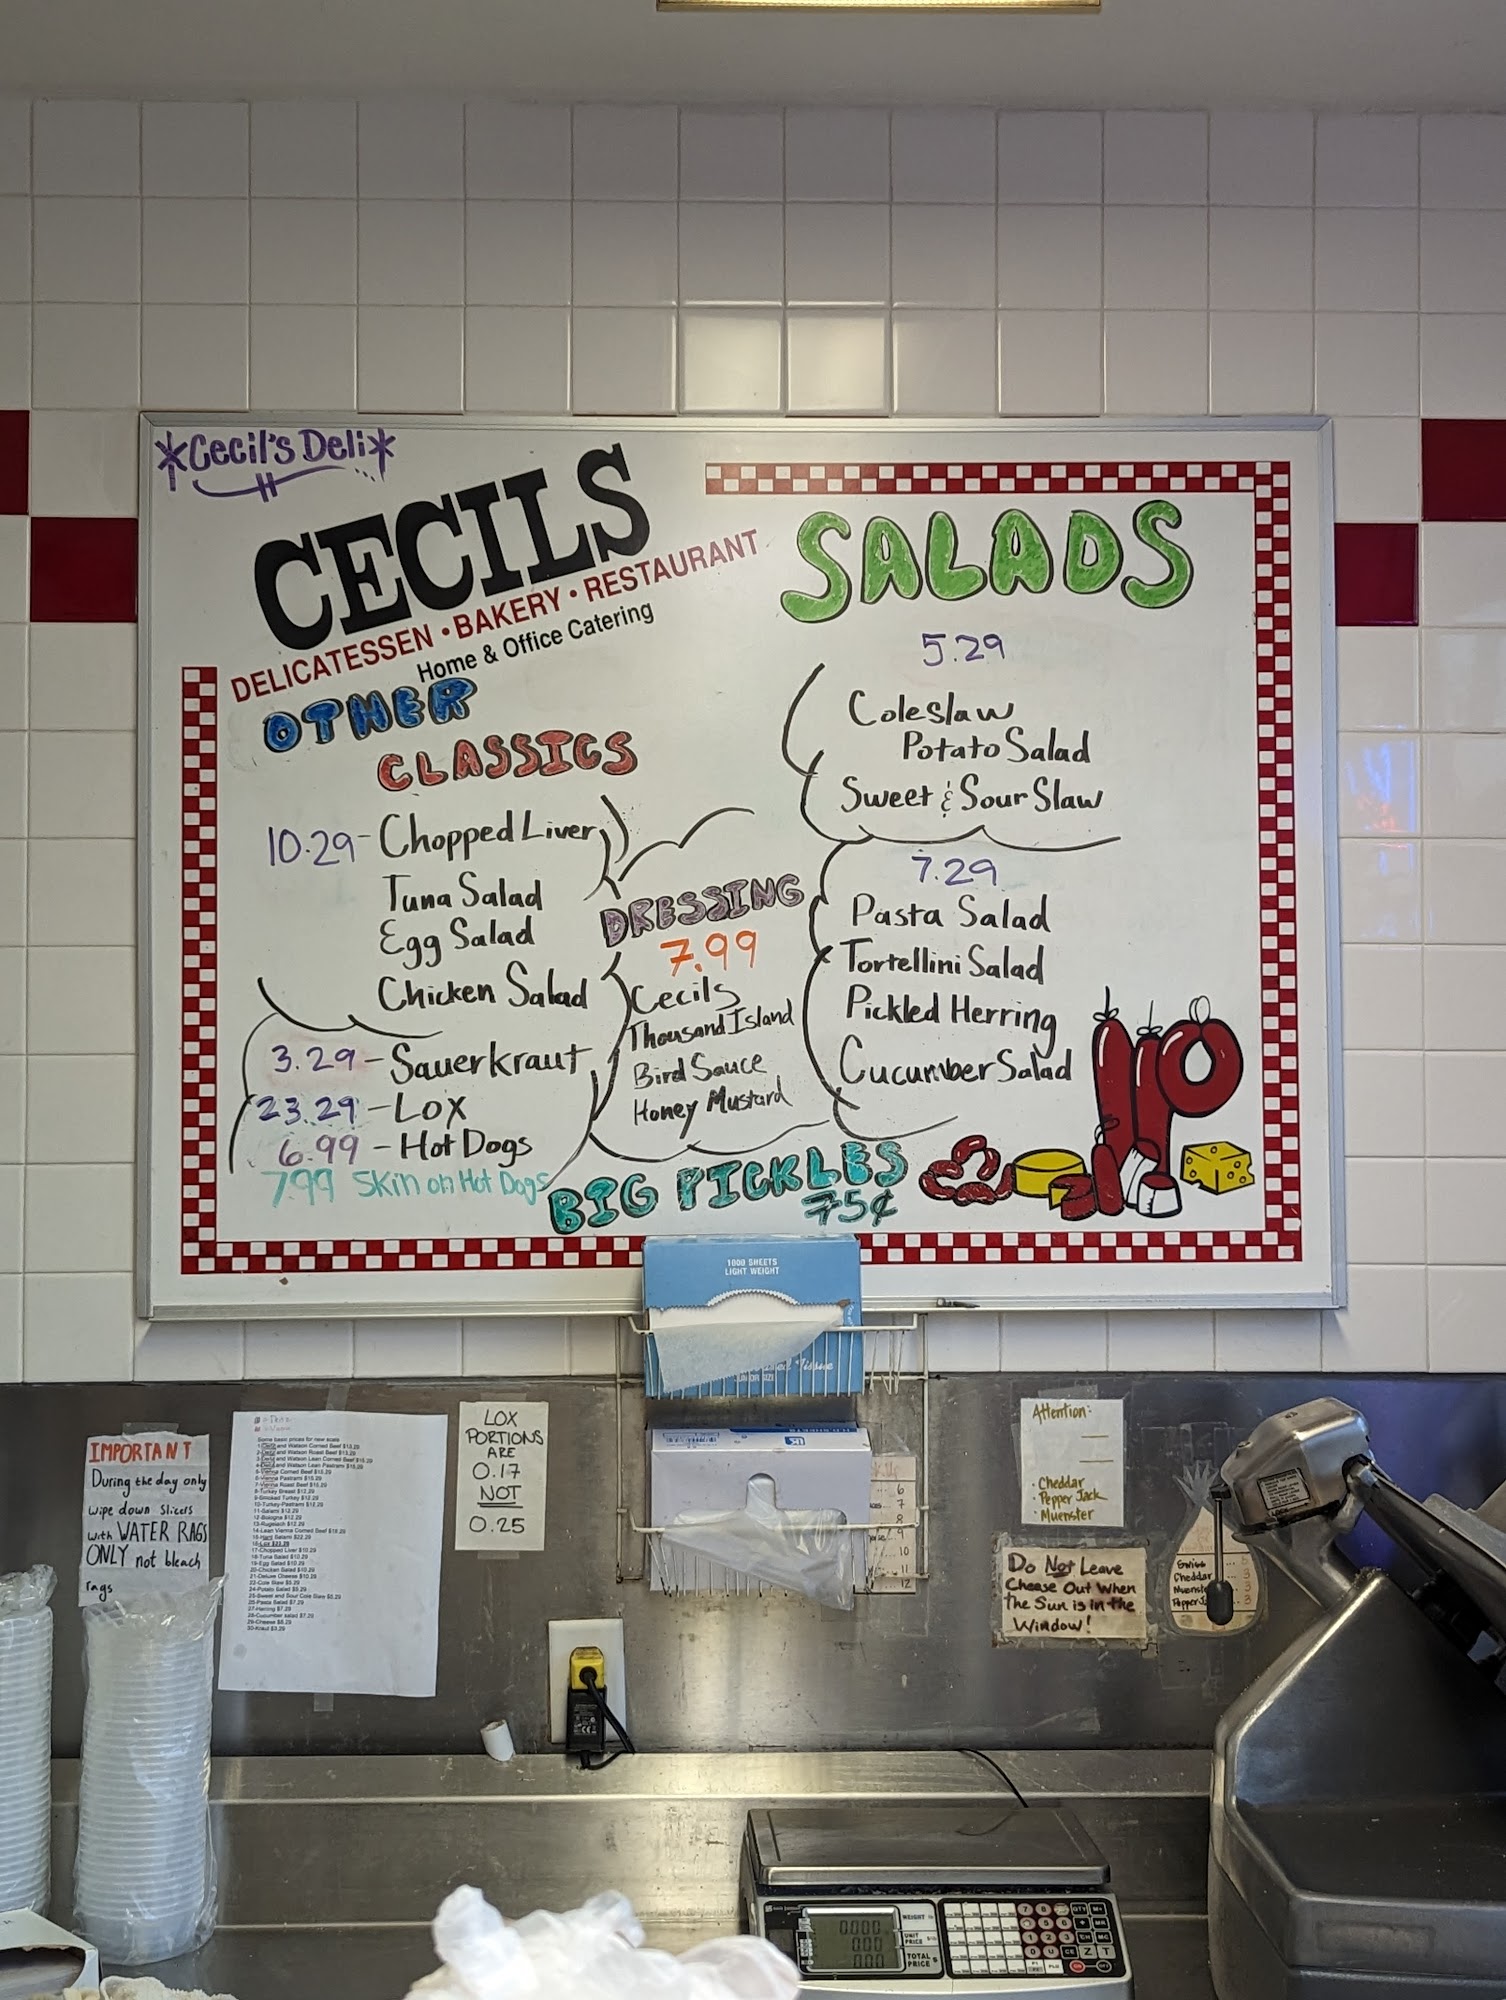 *Cecil's Deli*
CECILS
DELICATESSEN • BAKERY • RESTAURANT
Home & Office Catering
OTHER
CLASSICS
10.29 - Chopped Liver
Tuna Salad
Egg Salad
Chicken Salad
3.29 - Sauerkraut
23.29 - Lox
6.99 - Hot Dogs
7.99 Skin on Hot Dogs
DRESSING
7.99
Cecils
Thousand Island
Bird Sauce
Honey Mustard
BIG PICKLES
75¢
SALADS
5.29
Coleslaw
Potato Salad
Sweet & Sour Slaw
7.29
Pasta Salad
Tortellini Salad
Pickled Herring
Cucumber Salad
1000 SHEETS
LIGHT WEIGHT
IMPORTANT
During the day only
wipe down slicers
with WATER RAGS
ONLY not bleach
rags
Some basic prices for new scale
LOX
PORTIONS
ARE
0.17
NOT
0.25
6
7
8
9
10
11
12
Attention:
· Cheddar
· Pepper Jack
· Muenster
Do Not Leave
Cheese Out When
the Sun is in the
Window!
Swiss
Cheddar 3
Muenster 3
Pepper J 3
0.000 WEIGHT
0.00 UNIT PRICE
0.00 TOTAL PRICE